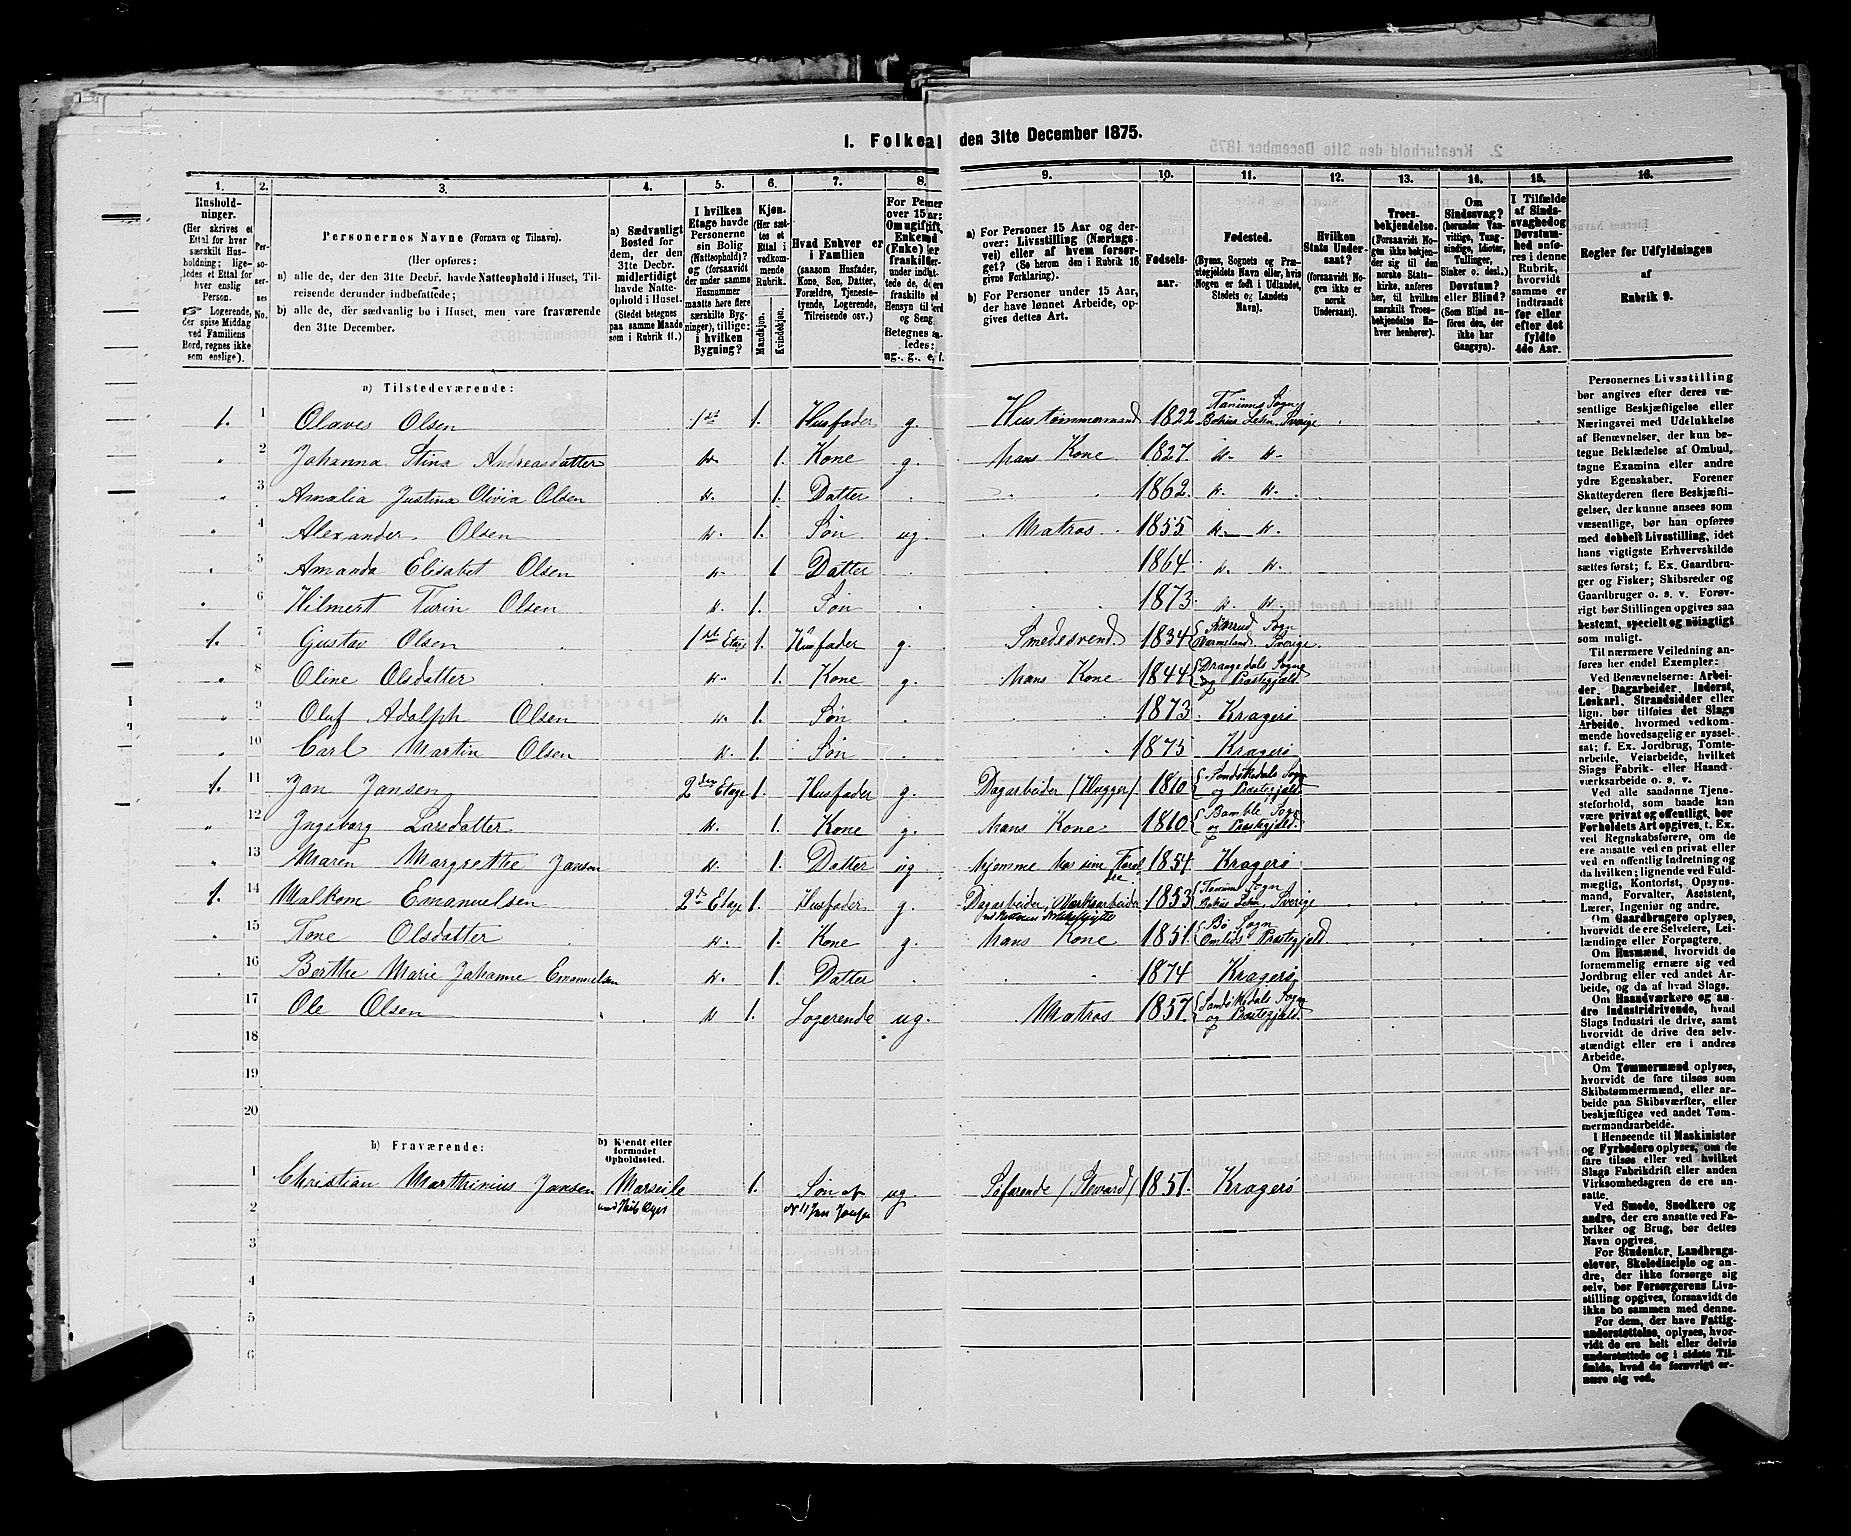 1. Folketæl den 31te December 1875.
1. 2. 3. 4. 5. 6. 7. 8. 9. 10. 11. 12. 13. 14. 15. 16.
Husholdninger.
(Her skrives et
Ettal for hver
særskilt Husholdning; ligeledes et Ettal for
hver enslig
Person.
☞ Logerende,
der spise Middag
ved Familiens
Bord, regnes ikke
som enslige).
Personernes No.
Personernes Navne (Fornavn og Tilnavn).
(Her opføres:
a) alle de, der den 31te Decbr. havde Natteophold i Huset, Tilreisende derunder indbefattede;
b) alle de, der sædvanlig bo i Huset, men vare fraværende
den 31te December.
a) Sædvanligt
Bosted for
dem, der den
31te Decbr.
midlertidigt
havde Natteophold i Huset.
(Stedet betegnes
paa samme Maade
som i Rubrik 11.)
I hvilken
Etage havde
Personerne
sin Bolig
(Natteophold)?
og (forsaavidt
der under samme
Husnummer
maatte høre flere
særskilte Bygninger), tillige:
i hvilken
Bygning?
Kjøn.
(Her sættes et
Ettal i
vedkommende
Rubrik.
Mandkjøn.
Kvindekjøn.
Hvad Enhver er
i Familien
(saasom Husfader,
Kone, Søn, Datter,
Forældre, Tjenestetyende, Logerende,
Tilreisende osv.)
For Personer
over 15 Aar:
Om ugift, gift,
Enkemand
(Enke) eller
fraskilt
Betegnes saaledes:
ug., g., e., f.
a) For Personer 15 Aar og derover: Livsstilling (Næringsvei) eller af hvem forsørget? (Se herom den i Rubrik 16
givne Forklaring).
b) For Personer under 15 Aar,
der have lønnet Arbeide, opgives dettes Art.
Fødselsaar.
Fødested.
(Byens, Sognets og Præstegjeldets Navn eller, hvis
Nogen er født i Udlandet,
Stedets og Landets
Navn).
Hvilken
Stats Undersaat?
(forsaavidt Nogen ikke er
norsk
Undersaat).
Troesbekjendelse.
(Forsaavidt Nogen ikke bekjender sig til den
norske Statskirke, anføres
her, til hvilken
særskilt Troesbekjendelse Enhver henhører).
Om
Sindssvag?
(herunder Vanvittige, Tungsindige, Idioter,
Tullinger,
Sinker o. desl.)
Døvstum?
eller Blind?
(Som Blind anføres den, der
ikke har
Gangsyn).
I Tilfælde
af Sindssvaghed og
Døvstumhed anføres i denne
Rubrik,
hvorvidt
samme er
indtraadt
før eller
efter det
fyldte
4de Aar.
Regler for Udfyldningen
af
Rubrik 9.
a) Tilstedeværende:
1. 1 Olaves Olsen 1ste 1. Husfader g. Hustømmermand 1822 Tanums Sogn Bohus Lehn, Sverige
" 2 Johanna Stina Andreasdatter " 1. Kone g. hans Kone 1827 " "
" 3 Amalia Justina Olivia Olsen " 1. Datter 1862 " "
" 4 Alexander Olsen " 1. Søn ug. Matros 1855 " "
" 5 Amanda Elisabet Olsen " 1 Datter 1864 " "
" 6 Hilmert Turin Olsen " 1. Søn 1873 " "
1. 7 Gustav Olsen 1ste Etage 1. Husfader g. Smedesvend 1834 Sogn Vermeland, Sverige
" 8 Oline Olsdatter " 1. Kone g. hans Kone 1844 Drangedals Sogn og Præstegjæld
" 9 Oluf Adolph Olsen " 1. Søn 1873 Kragerø
" 10 Carl Martin Olsen " 1. Søn 1875 Kragerø
1. 11 Jan Jansen 2den Etage 1. Husfader g. Dagarbeider (Hugger) 1810 Sandøkedals Sogn og Præstegjæld
" 12 Ingeborg Larsdatter " 1. Kone g. hans Kone 1810 Bamble Sogn og Præstegjæld.
" 13 Maren Margrethe Jansen " 1. Datter ug hjemme hos sine Foræl 1854 Kragerø
1. 14 Malkom Emanuelsen 2d Etage 1. Husfader g. Dagarbeider, Værksarbeider 1853 Tanum Sogn Bohus Lehn, Sverige
" 15 Tone Olsdatter " 1. Kone g. hans Kone 1851 Bø Sogn Omlids Præstegjæld
" 16 Berthe Marie Johanne Emanuelsen " 1. Datter 1874 Kragerø
17 Ole Olsen " 1. Logerende ug. Matros 1857 Sandøkedals Sogn og Præstegjæld
18
19
20
b) Fraværende:
b) Kjendt eller
formodet
Opholdssted.
1 Christian Marthinius Jansen Marseile 1. Søn af No 11 Jan Jansen ug Søfarende (Steward) 1851. Kragerø
2
3
4
5
6
Personernes Livsstilling
bør angives efter deres væsentlige Beskjæftigelse eller
Næringsvei med Udelukkelse
af Benævnelser, der kun betegne Beklædelse af Ombud,
tagne Examina eller andre
ydre Egenskaber. Forener
Skatteyderen flere Beskjæftigelser, der kunne ansees som
væsentlige, bør han opføres
med dobbelt Livsstilling, idet
hans vigtigste Erhvervskilde
sættes først; f. Ex. Gaardbruger og Fisker; Skibsreder og
Gaardbruger o. s. v. Forøvrigt bør Stillingen opgives saa
bestemt, specielt og nöiagtigt
som muligt.
Til nærmere Veiledning anføres her endel Exempler:
Ved Benævnelserne: Arbeider, Dagarbeider, Inderst,
Løskarl, Strandsidder eller
lign. bør tilføies det Slags
Arbeide, hvormed vedkommende hovedsagelig er sysselsat; f. Ex. Jordbrug, Tomtearbeide, Veiarbeide, hvilket
Slags Fabrik- eller Haandværksarbeide o. s. v.
Ved alle saadanne Tjenesteforhold, som baade kan
være privat og offentligt, bør
Forholdets Art opgives, f. Ex.
ved Regnskabsførere, om de
ere ansatte ved en privat eller
ved en offentlig Indretning og
da hvilken; lignende ved Fuldmægtig, Kontorist, Opsynsmand, Forvalter, Assistent,
Lærer, Ingeniør og andre.
Om Gaardbrugere oplyses,
hvorvidt de ere Selveiere, Leilændinge eller Forpagtere.
Om Husmænd, hvorvidt de
fornemmelig ernære sig ved
Jordbrug eller ved andet Arbeide, og da af hvad Slags.
Om Haandværkere og andre Industridrivende, hvad
Slags Industri de drive, samt
hvorvidt de drive den selvstændigt eller ere i andres
Arbeide.
Om Tømmermænd oplyses,
hvorvidt de fare tilsøs som
Skibstømmermænd, eller arbeide paa Skibsværfter, eller
beskjæftiges ved andet Tømmermandsarbeide.
I Henseende til Maskinister
og Fyrbødere oplyses, om de
fare tilsøs eller ved hvilket
Slags Fabrikdrift eller anden
Virksomhedsgren de ere ansatte.
Ved Smede, Snedkere og
andre, der ere ansatte ved Fabriker og Brug, bør dettes
Navn opgives.
For Studenter, Landbrugselever, Skoledisciple og andre, der ikke forsørge sig
selv, bør Forsørgerens Livsstilling opgives, forsaavidt de
ikke bo sammen med denne.
For dem, der have Fattigunderstøttelse, oplyses, hvorvidt de ere helt eller delvis
understøttede og i sidste Tilfælde, hvad de forøvrigt ernære sig ved.